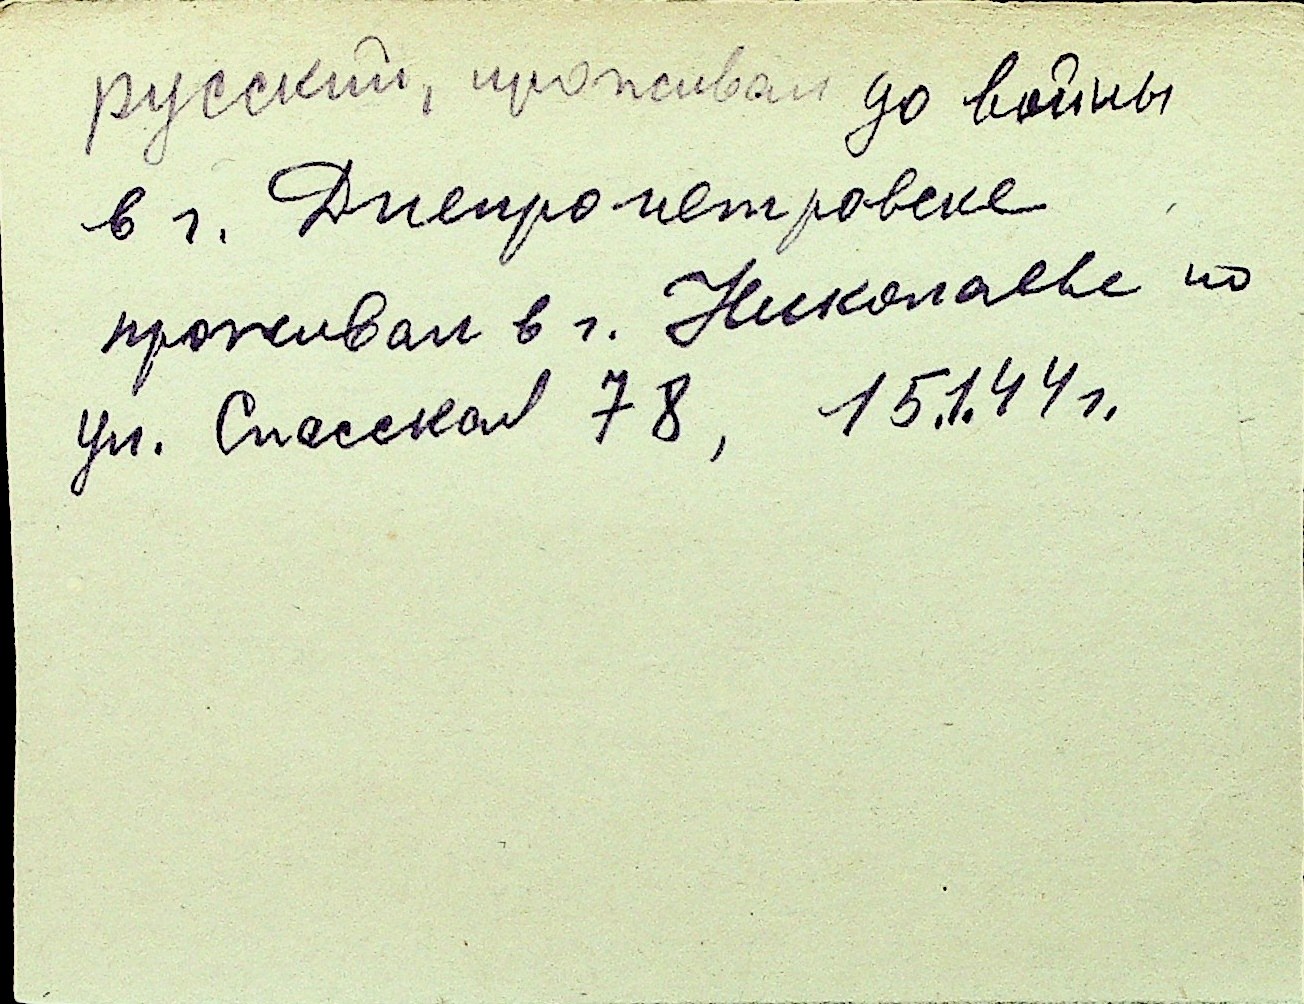 русский, проживал до войны
в г. Днепропетровске
проживал в г. Николаеве по
ул. Спасская 78, 15.1.44 г.